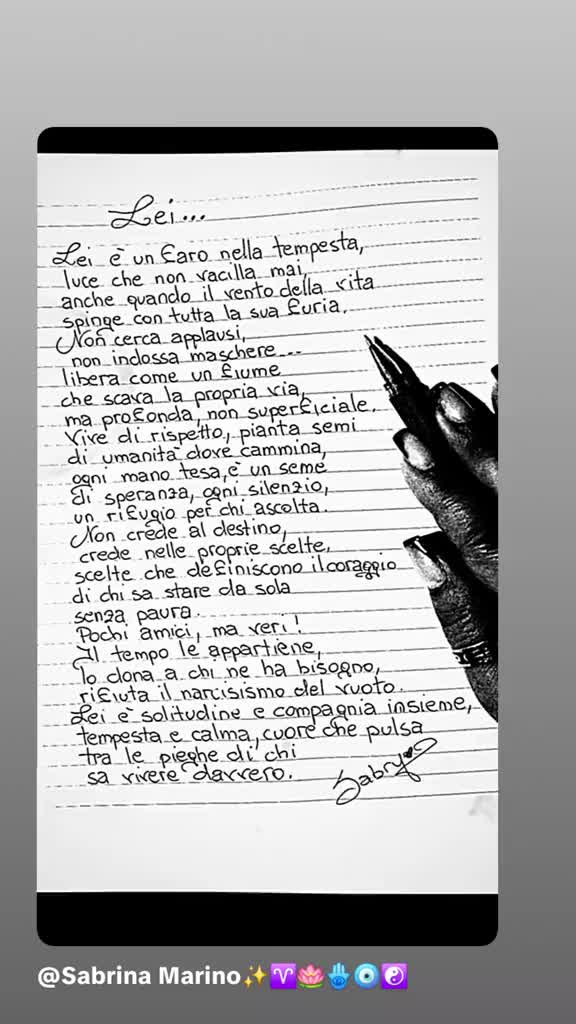 Lei...
Lei è un faro nella tempesta,
luce che non vacilla mai,
anche quando il vento della vita
spinge con tutta la sua furia.
Non cerca applausi,
non indossa maschere...
libera come un fiume
che scava la propria via,
ma profonda, non superficiale.
Vive di rispetto, pianta semi
di umanità dove cammina,
ogni mano tesa, è un seme
di speranza, ogni silenzio,
un rifugio per chi ascolta.
Non crede al destino,
crede nelle proprie scelte,
scelte che definiscono il coraggio
di chi sa stare da sola
senza paura.
Pochi amici, ma veri!
Il tempo le appartiene,
lo dona a chi ne ha bisogno,
rifiuta il narcisismo del vuoto.
Lei è solitudine e compagnia insieme,
tempesta e calma, cuore che pulsa
tra le pieghe di chi
sa vivere davvero.
Sabry
@Sabrina Marino✨♈🪷🪬🧿☯️